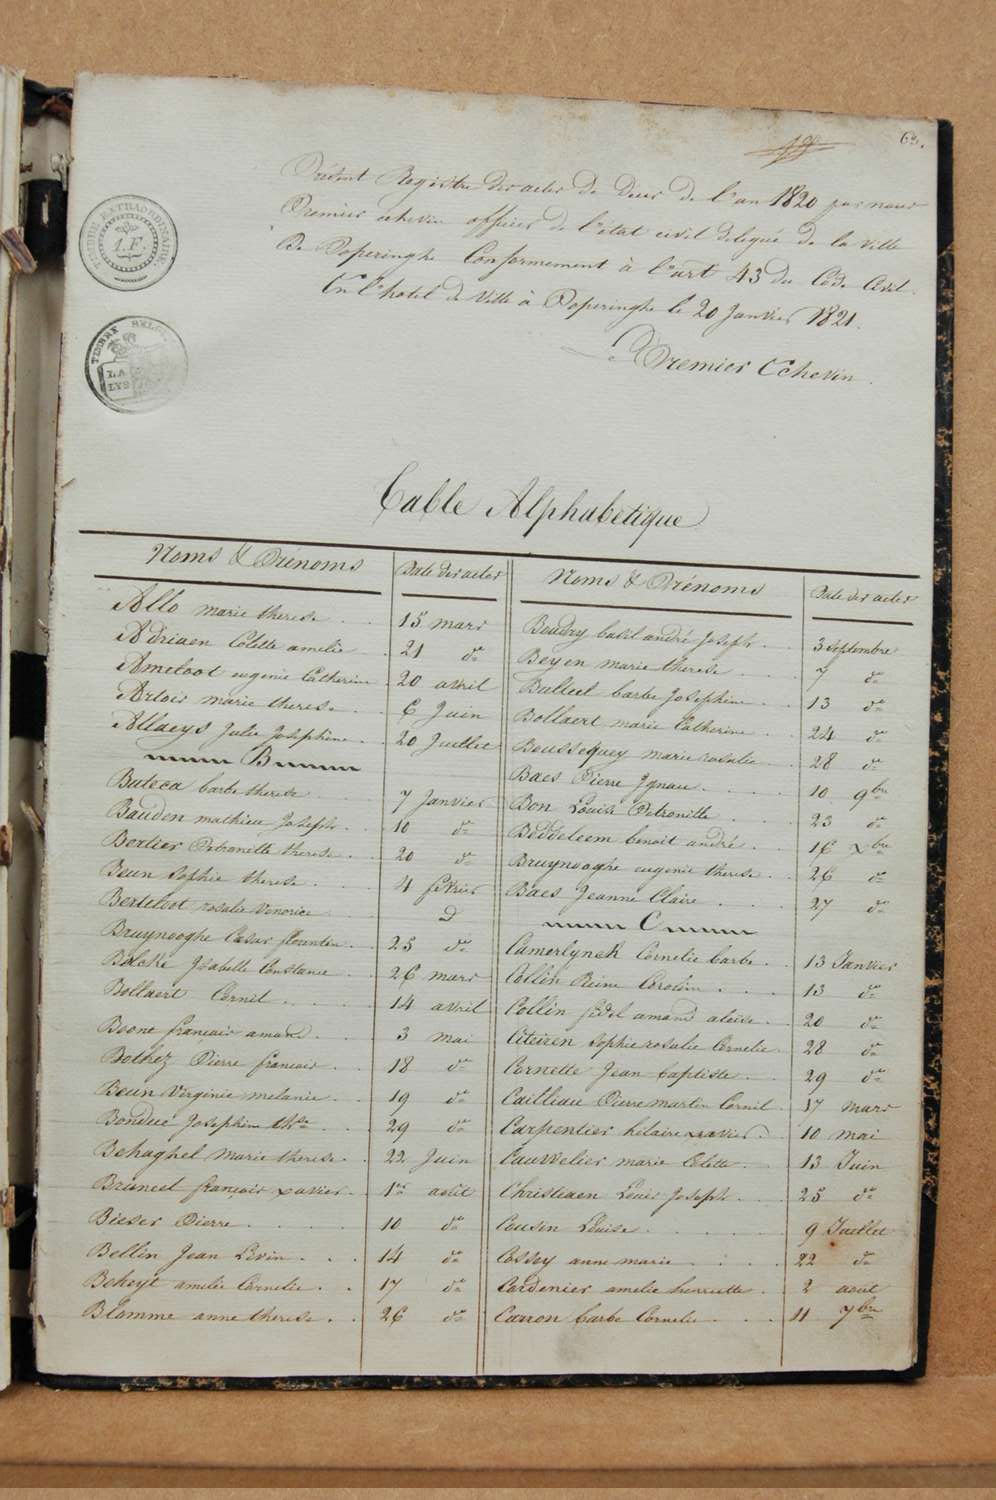 63.
Présent Registre des actes de Deces de l'an 1820 par nous
Premier echevin officier de l'état civil delegué de la ville
De Poperinghe Conformement à l'art 43 du Code Civil.
En l'hotel de Ville à Poperinghe le 20 Janvier 1821.
Le Premier Echevin.
TIMBRE EXTRAORDINAIRE.
1.F.
TIMBRE BELG
LA
LYS
Table Alphabetique
Noms & Prénoms Date des actes
Allo marie therese 15 mars
Adriaen Colette amelie 21 do
Ameloot eugenie Catherine 20 avril
Artois marie therese 6 Juin
Allaeys Julie Josephine 20 Juillet
B
Bateca barbe therese 7 Janvier
Bauden mathieu Joseph 10 do
Bertier Petronille therese 20 do
Beun Sophie therese 4 février
Berteloot rosalie Venorice D
Bruynooghe Cesar florentin 25 do
Bolcke Isabelle Constance 26 mars
Bollaert Cornil 14 avril
Boone françois amand 3 mai
Bothez Pierre françois 18 do
Beun Virginie melanie 19 do
Bonduć Josephine thse 29 do
Behaghel marie therese 22 Juin
Bruneel françois xavier 1er août
Bieser Pierre 10 do
Bellin Jean Livin 14 do
Beheyt amelie Cornelie 17 do
Blomme anne therese 26 do
Noms & Prénoms Date des actes
Boudry basil andré Joseph 3 Septembre
Beyen marie therese 7 do
Batteel barbe Josephine 13 do
Bollaert marie Catherine 24 do
Beussequey marie rosalie 28 do
Baes Pierre Ignace 10 9bre
Bon Louise Petronille 23 do
Beddeleem benoit andré 16 xbre
Bruynooghe eugenie therese 26 do
Baes Jeanne Claire 27 do
C
Camerlynck Cornelie barbe 13 Janvier
Collin Reine Caroline 13 do
Collin fidel amand aloise 20 do
Citeiren Sophie rosalie Cornelie 28 do
Cornette Jean baptiste 29 do
Cailliau Pierre martin Cornil 17 mars
Carpentier hilaire xavier 10 mai
Cauwelier marie Colette 13 Juin
Christiaen Louis Joseph 25 do
Cousin Louise 9 Juillet
Cossey anne marie 22 do
Cardenier amelie henriette 2 aout
Carron barbe Cornelie 11 7bre